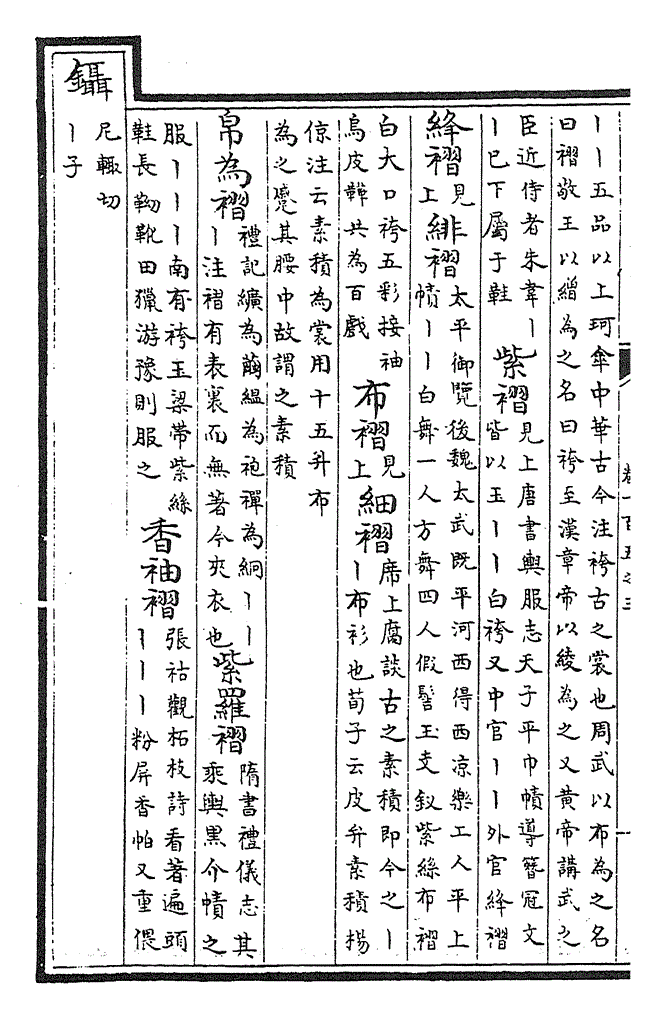 卷一百五之三
｜｜五品以上珂傘中華古今注袴古之裳也周武以布為之名
曰褶敬王以繒為之名曰袴至漢章帝以綾為之又黃帝講武之
臣近侍者朱韋｜
｜巳下屬于鞋
紫褶
見上唐書輿服志天子平巾幘導簪冠文
皆以玉｜｜白袴又中官｜｜外官絳褶
絳褶
見上
緋褶
太平御覽後魏太武既平河西得西凉樂工人平上
幘｜｜白舞一人方舞四人假髻玉支釵紫絲布褶
白大口袴五彩接袖
烏皮鞾共為百戲
布褶
見上
細褶
席上腐談古之素積即今之｜
｜布衫也荀子云皮弁素積楊
倞注云素積為裳用十五升布
為之蹙其腰中故謂之素積
帛為褶
禮記纊為繭緼為袍襌為絅｜｜
｜注褶有表裏而無著今夾衣也
紫羅褶
隋書禮儀志其
乘輿黑介幘之
服｜｜｜南布袴玉梁帶紫絲
鞋長靿靴田獵游豫則服之
香袖褶
張祜觀柘枝詩看著遍頭
｜｜｜粉屏香帕又重偎
鑷
尼輒切
｜子